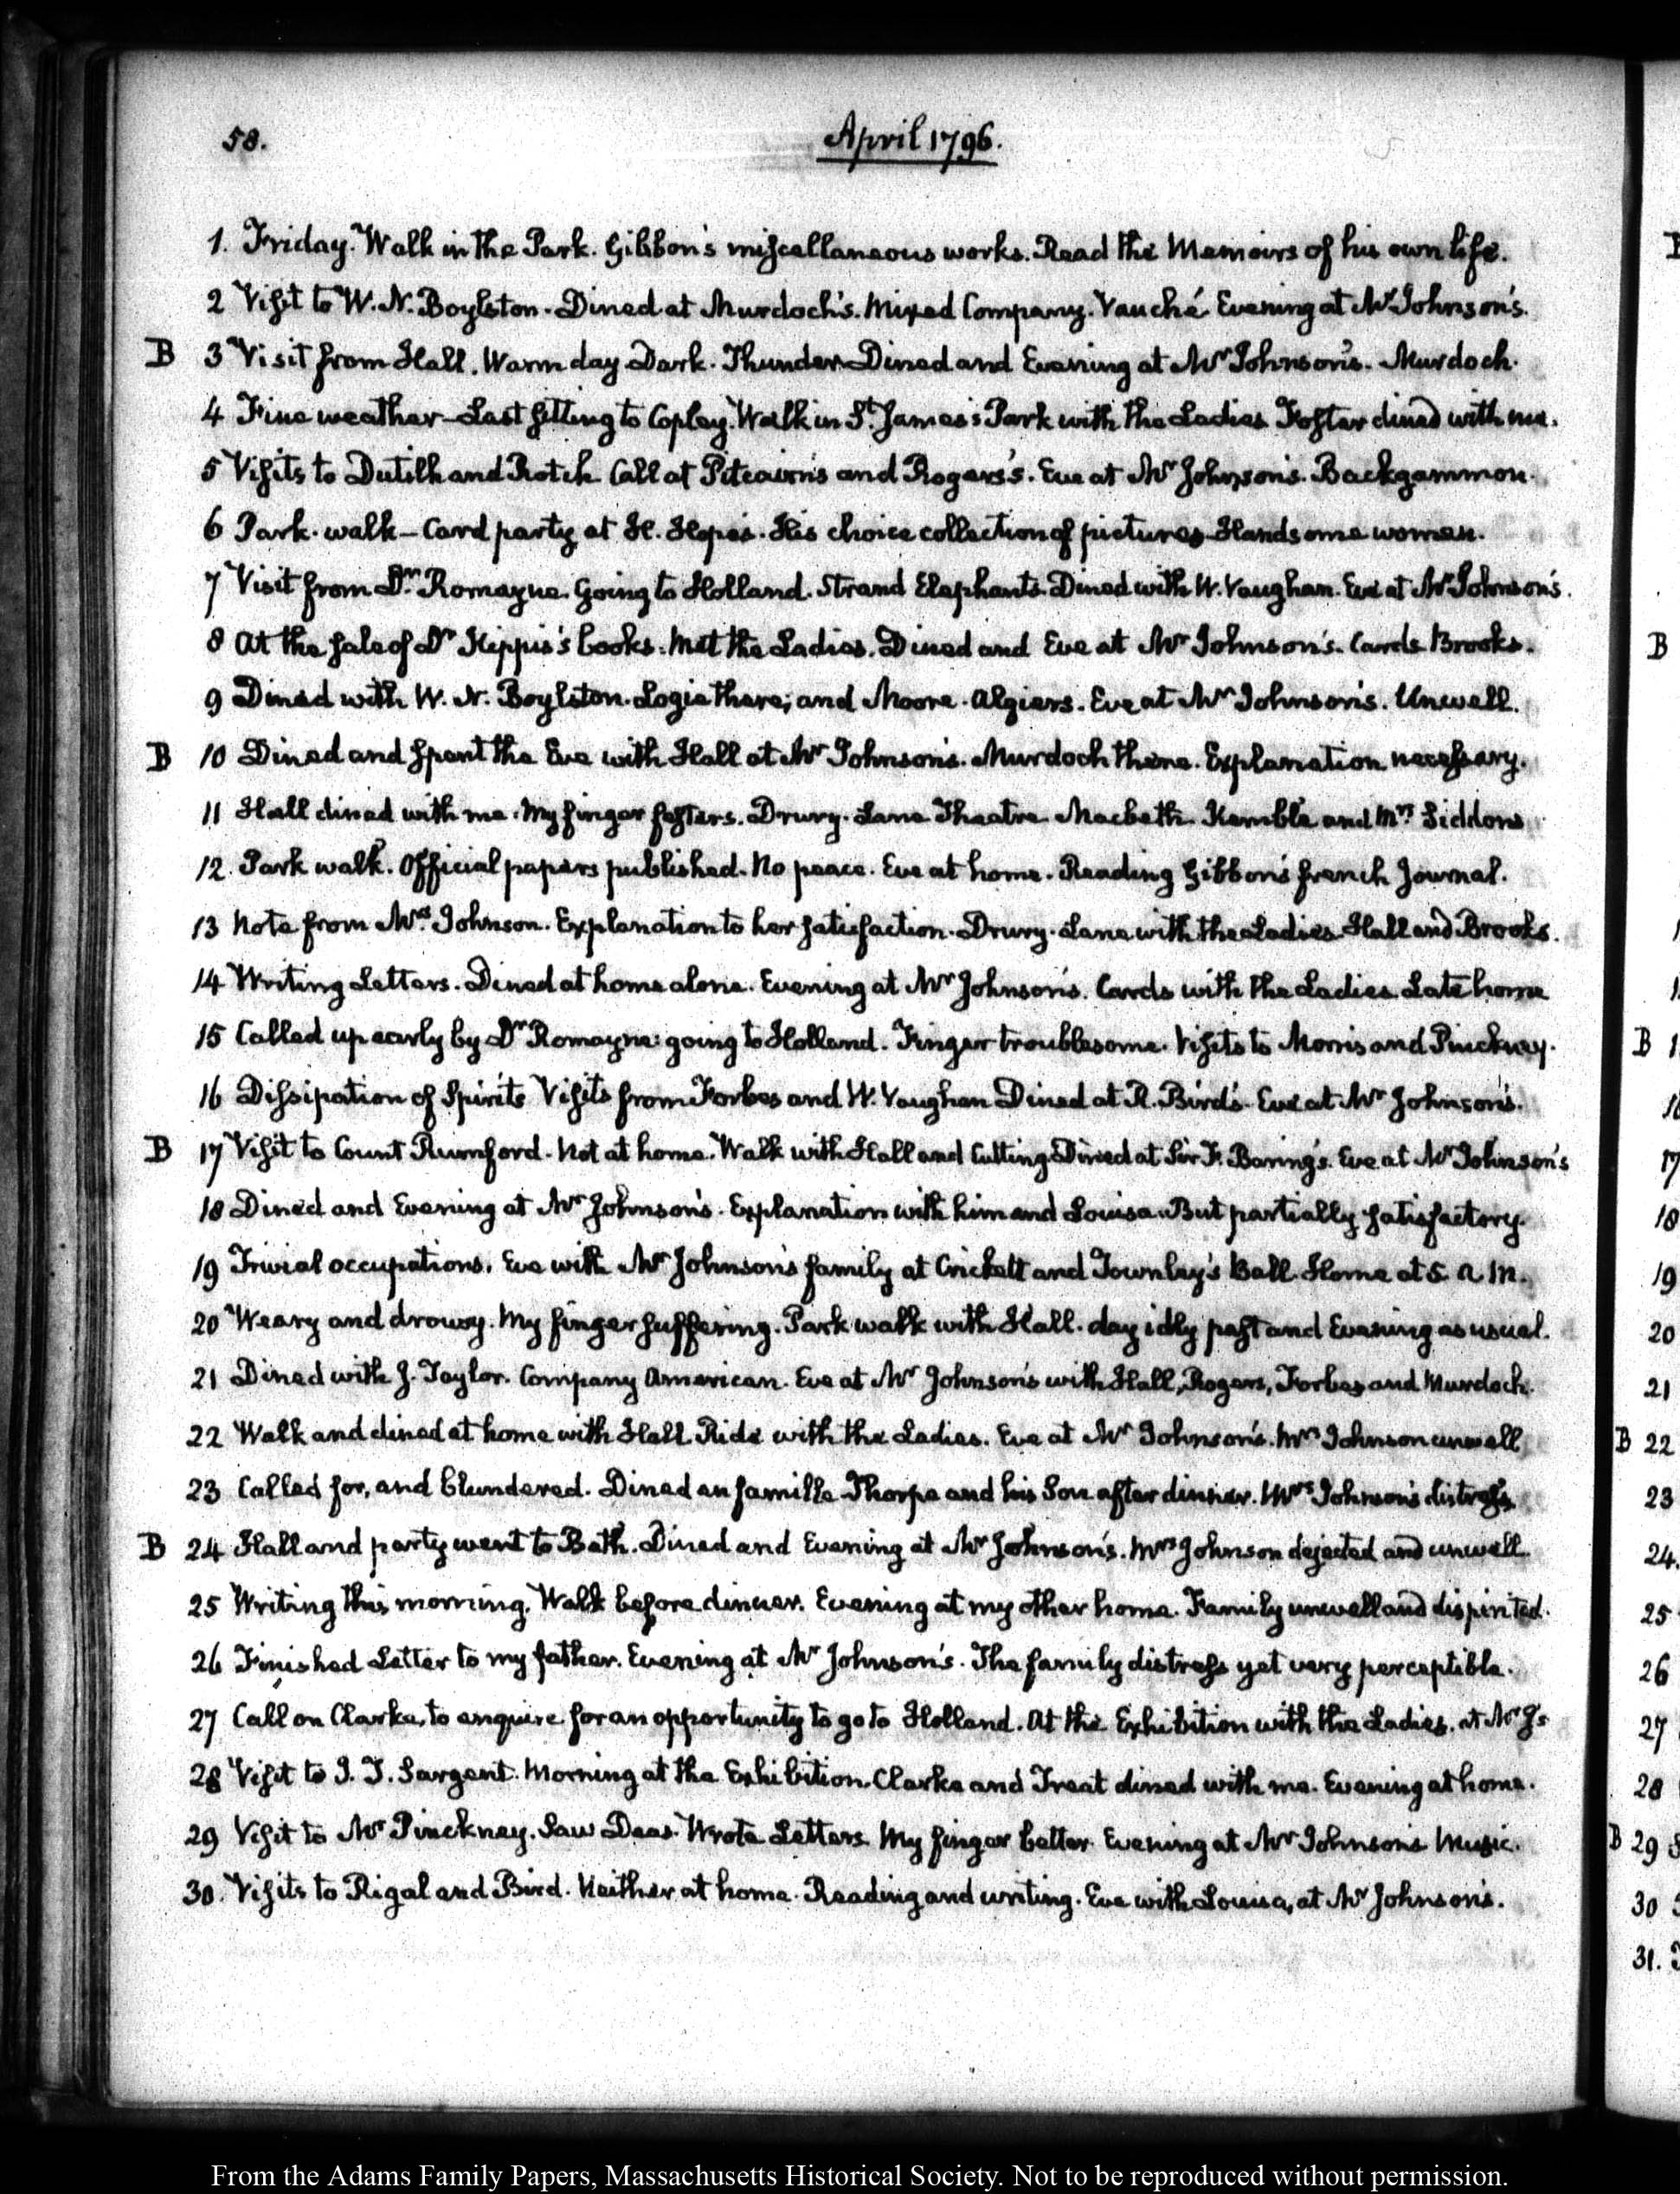 58.
April 1796.
1. Friday. Walk in the Park. Gibbon's miscellaneous works. Read the Memoirs of his own life.
2 Visit to W. N. Boylston. Dined at Murdoch's. Mixed Company. Vauché. Evening at Mr Johnson's.
B 3 Visit from Hall. Warm day Dark. Thunder Dined and Evening at Mr Johnson's. Murdoch.
4 Fine weather—Last sitting to Copley. Walk in St. James's Park with the Ladies Foster dined with me.
5 Visits to Dutilh and Rotch Call at Pitcairn's and Rogers's. Eve at Mr Johnson's. Backgammon.
6 Park. walk—Card party at H. Hope's. His choice collection of pictures Handsome women.
7 Visit from Dr. Romayne. Going to Holland. Strand Elephants. Dined with W. Vaughan. Eve at Mr Johnson's.
8 At the sale of Dr Kippis's books. Met the Ladies. Dined and Eve at Mr Johnson's. Cards. Brooks.
9 Dined with W. N. Boylston. Logie there; and Moore. Algiers. Eve at Mr Johnson's. Unwell.
B 10 Dined and spent the Eve with Hall at Mr Johnson's. Murdoch there. Explanation necessary.
11 Hall dined with me. My finger festers. Drury. Lane Theatre Macbeth. Kemble and Mrs Siddons
12. Park walk. Official papers published. No peace. Eve at home. Reading Gibbon's french Journal.
13 Note from Mrs. Johnson. Explanation to her satisfaction. Drury. Lane with the Ladies Hall and Brooks.
14 Writing Letters. Dined at home alone. Evening at Mr Johnson's. Cards with the Ladies Late home
15 Called up early by Dr Romayne: going to Holland. Finger troublesome. Visits to Morris and Pinckney.
16 Dissipation of Spirits Visits from Forbes and W. Vaughan Dined at R. Bird's. Eve at Mr Johnson's.
B 17 Visit to Count Rumford. Not at home. Walk with Hall and Cutting. Dined at Sir F. Baring's. Eve at Mr Johnson's
18 Dined and Evening at Mr Johnson's. Explanation with him and Louisa. But partially satisfactory.
19 Trivial occupations. Eve with Mr Johnson's family at Crickett and Townley's Ball. Home at 5 A. M.
20 Weary and drowsy. My finger suffering. Park walk with Hall. day idly past and Evening as usual.
21 Dined with J. Taylor. Company American. Eve at Mr Johnson's with Hall, Rogers, Forbes and Murdoch.
22 Walk and dined at home with Hall. Ride with the Ladies. Eve at Mr Johnson's. Mrs Johnson unwell
23 Called for, and blundered. Dined en famille Thorpe and his Son after dinner. Mrs Johnson's distress.
B 24 Hall and party went to Bath. Dined and Evening at Mr Johnson's. Mrs Johnson dejected and unwell.
25 Writing this morning. Walk before dinner. Evening at my other home. Family unwell and dispirited.
26 Finished Letter to my father. Evening at Mr Johnson's. The family distress yet very perceptible.
27 Call on Clarke, to enquire for an opportunity to go to Holland. At the Exhibition with the Ladies. at Mr J's
28 Visit to I. T. Sargent. Morning at the Exhibition. Clarke and Treat dined with me. Evening at home.
29 Visit to Mr Pinckney. Saw Deas. Wrote Letters. My finger better. Evening at Mr Johnson's Music.
30. Visits to Rigal and Bird. Neither at home. Reading and writing. Eve with Louisa, at Mr Johnson's.
From the Adams Family Papers, Massachusetts Historical Society. Not to be reproduced without permission.